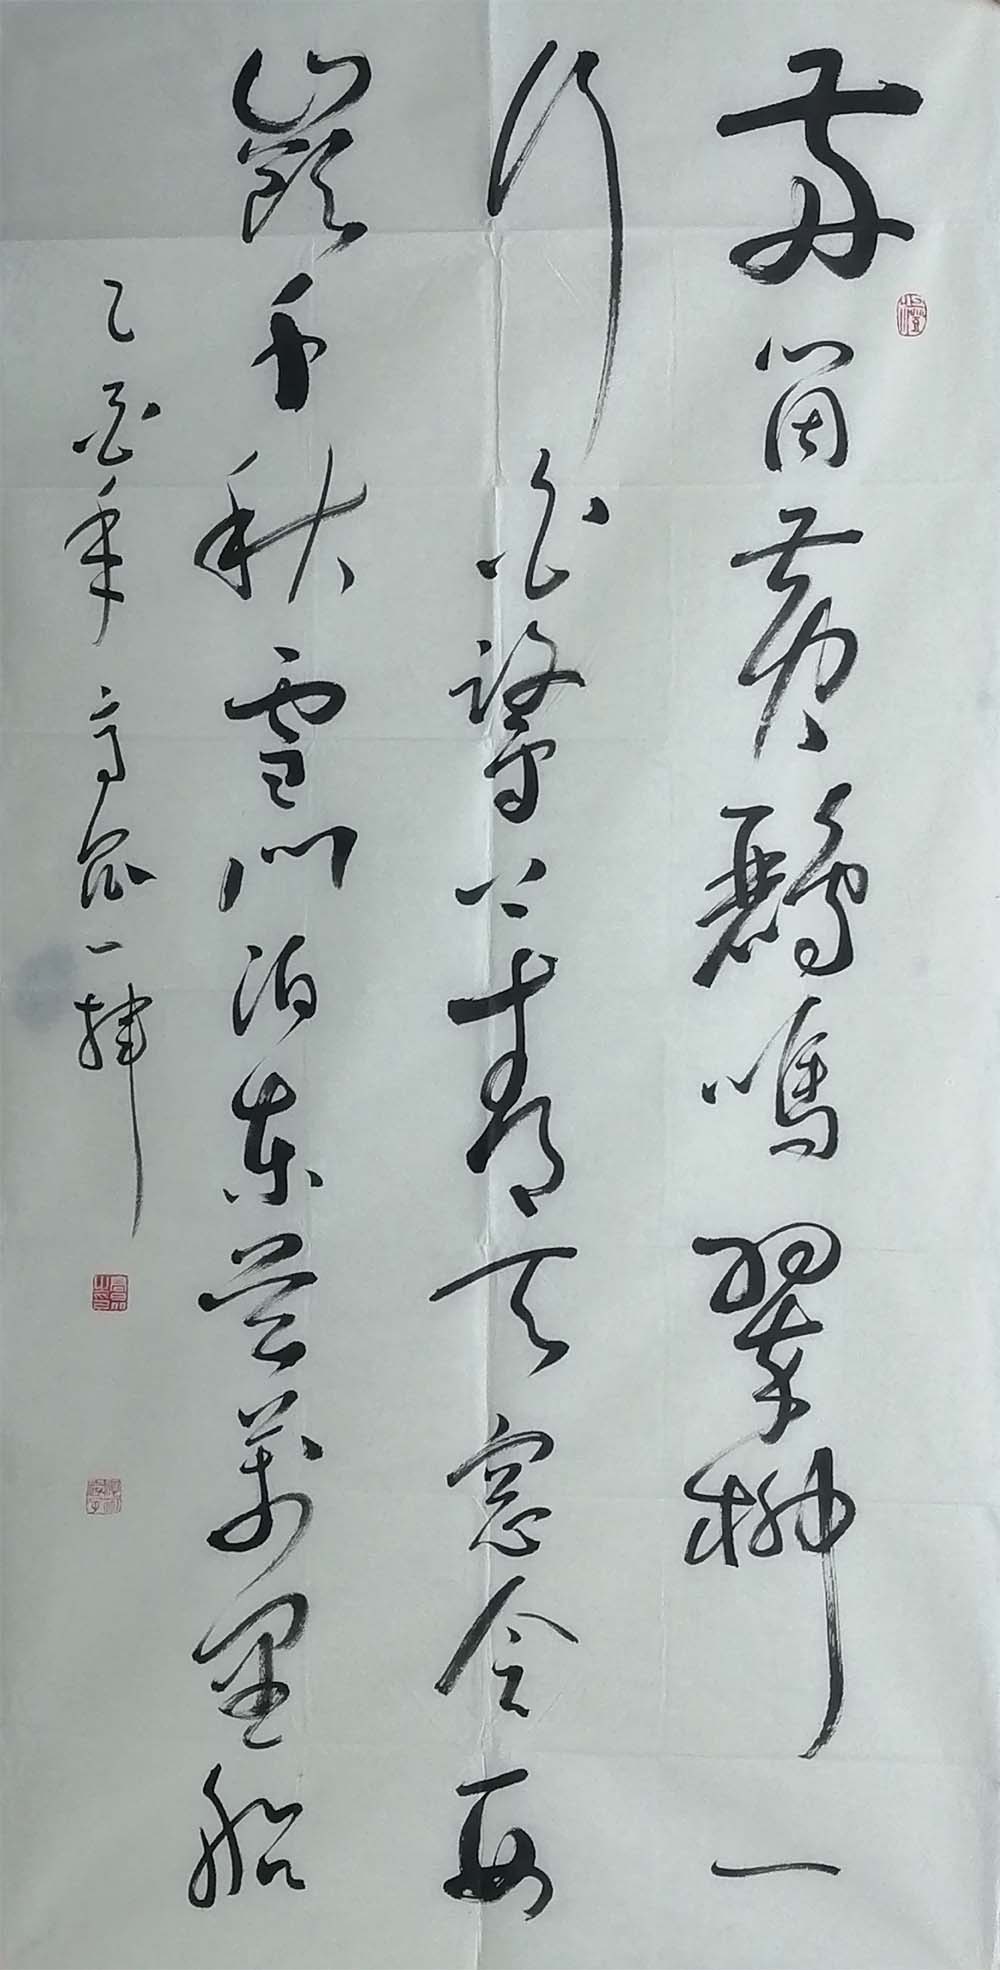 兩箇黃鸝鳴翠柳一
行白鷺上青天窓含西
嶺千秋雪門泊東吳萬里船
乙酉年高一揮